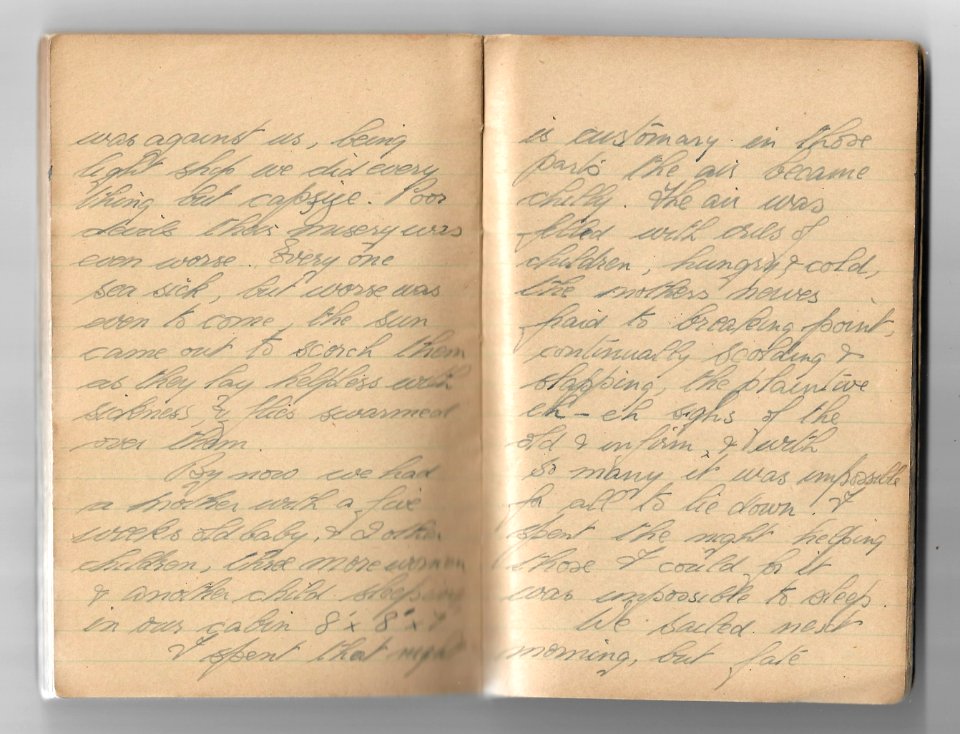 was against us, being
light ship we did every
thing but capsize. Poor
devils their misery was
even worse. Every one
sea sick, but worse was
even to come, the sun
came out to scorch them
as they lay helpless with
sickness & flies swarmed
over them.
By now we had
a mother with a five
weeks old baby, & 2 other
children, three more women
& another child sleeping
in our cabin 8' x 8' x 7'
I spent that night
is customary in those
parts the air became
chilly. The air was
filled with cries of
children, hungry & cold,
the mothers nerves
fraid to breaking point,
continually scolding &
slapping, the plaintive
eh - eh sighs of the
old & infirm, & with
so many it was impossible
for all to lie down. I
spent the night helping
those I could for it
was impossible to sleep.
We sailed next
morning, but fate